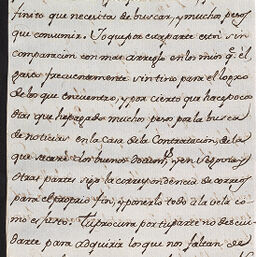 finito que necesita de buscar, y muchos pesos
que consumir. Yo que por esa parte estoi sin
comparacion con mas arreglo en los mios qe. el
gasto frecuentemente sin tino para el logro
de los que encuentro, y por cierto que hace pocos
dias que he pagado mucho peso por la busca
de noticias en la Casa de la Contratacion, de la
que saco los buenos docum.tos, y en
otras partes sigo la correspondencia de
para el propio fin, y ponerlo todo à la vela co
mo es justo. Tu procura por tu parte no descui
darte para adquirir lo que nos faltan de